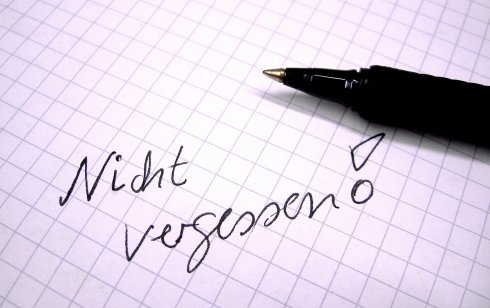 Nicht
vergessen!